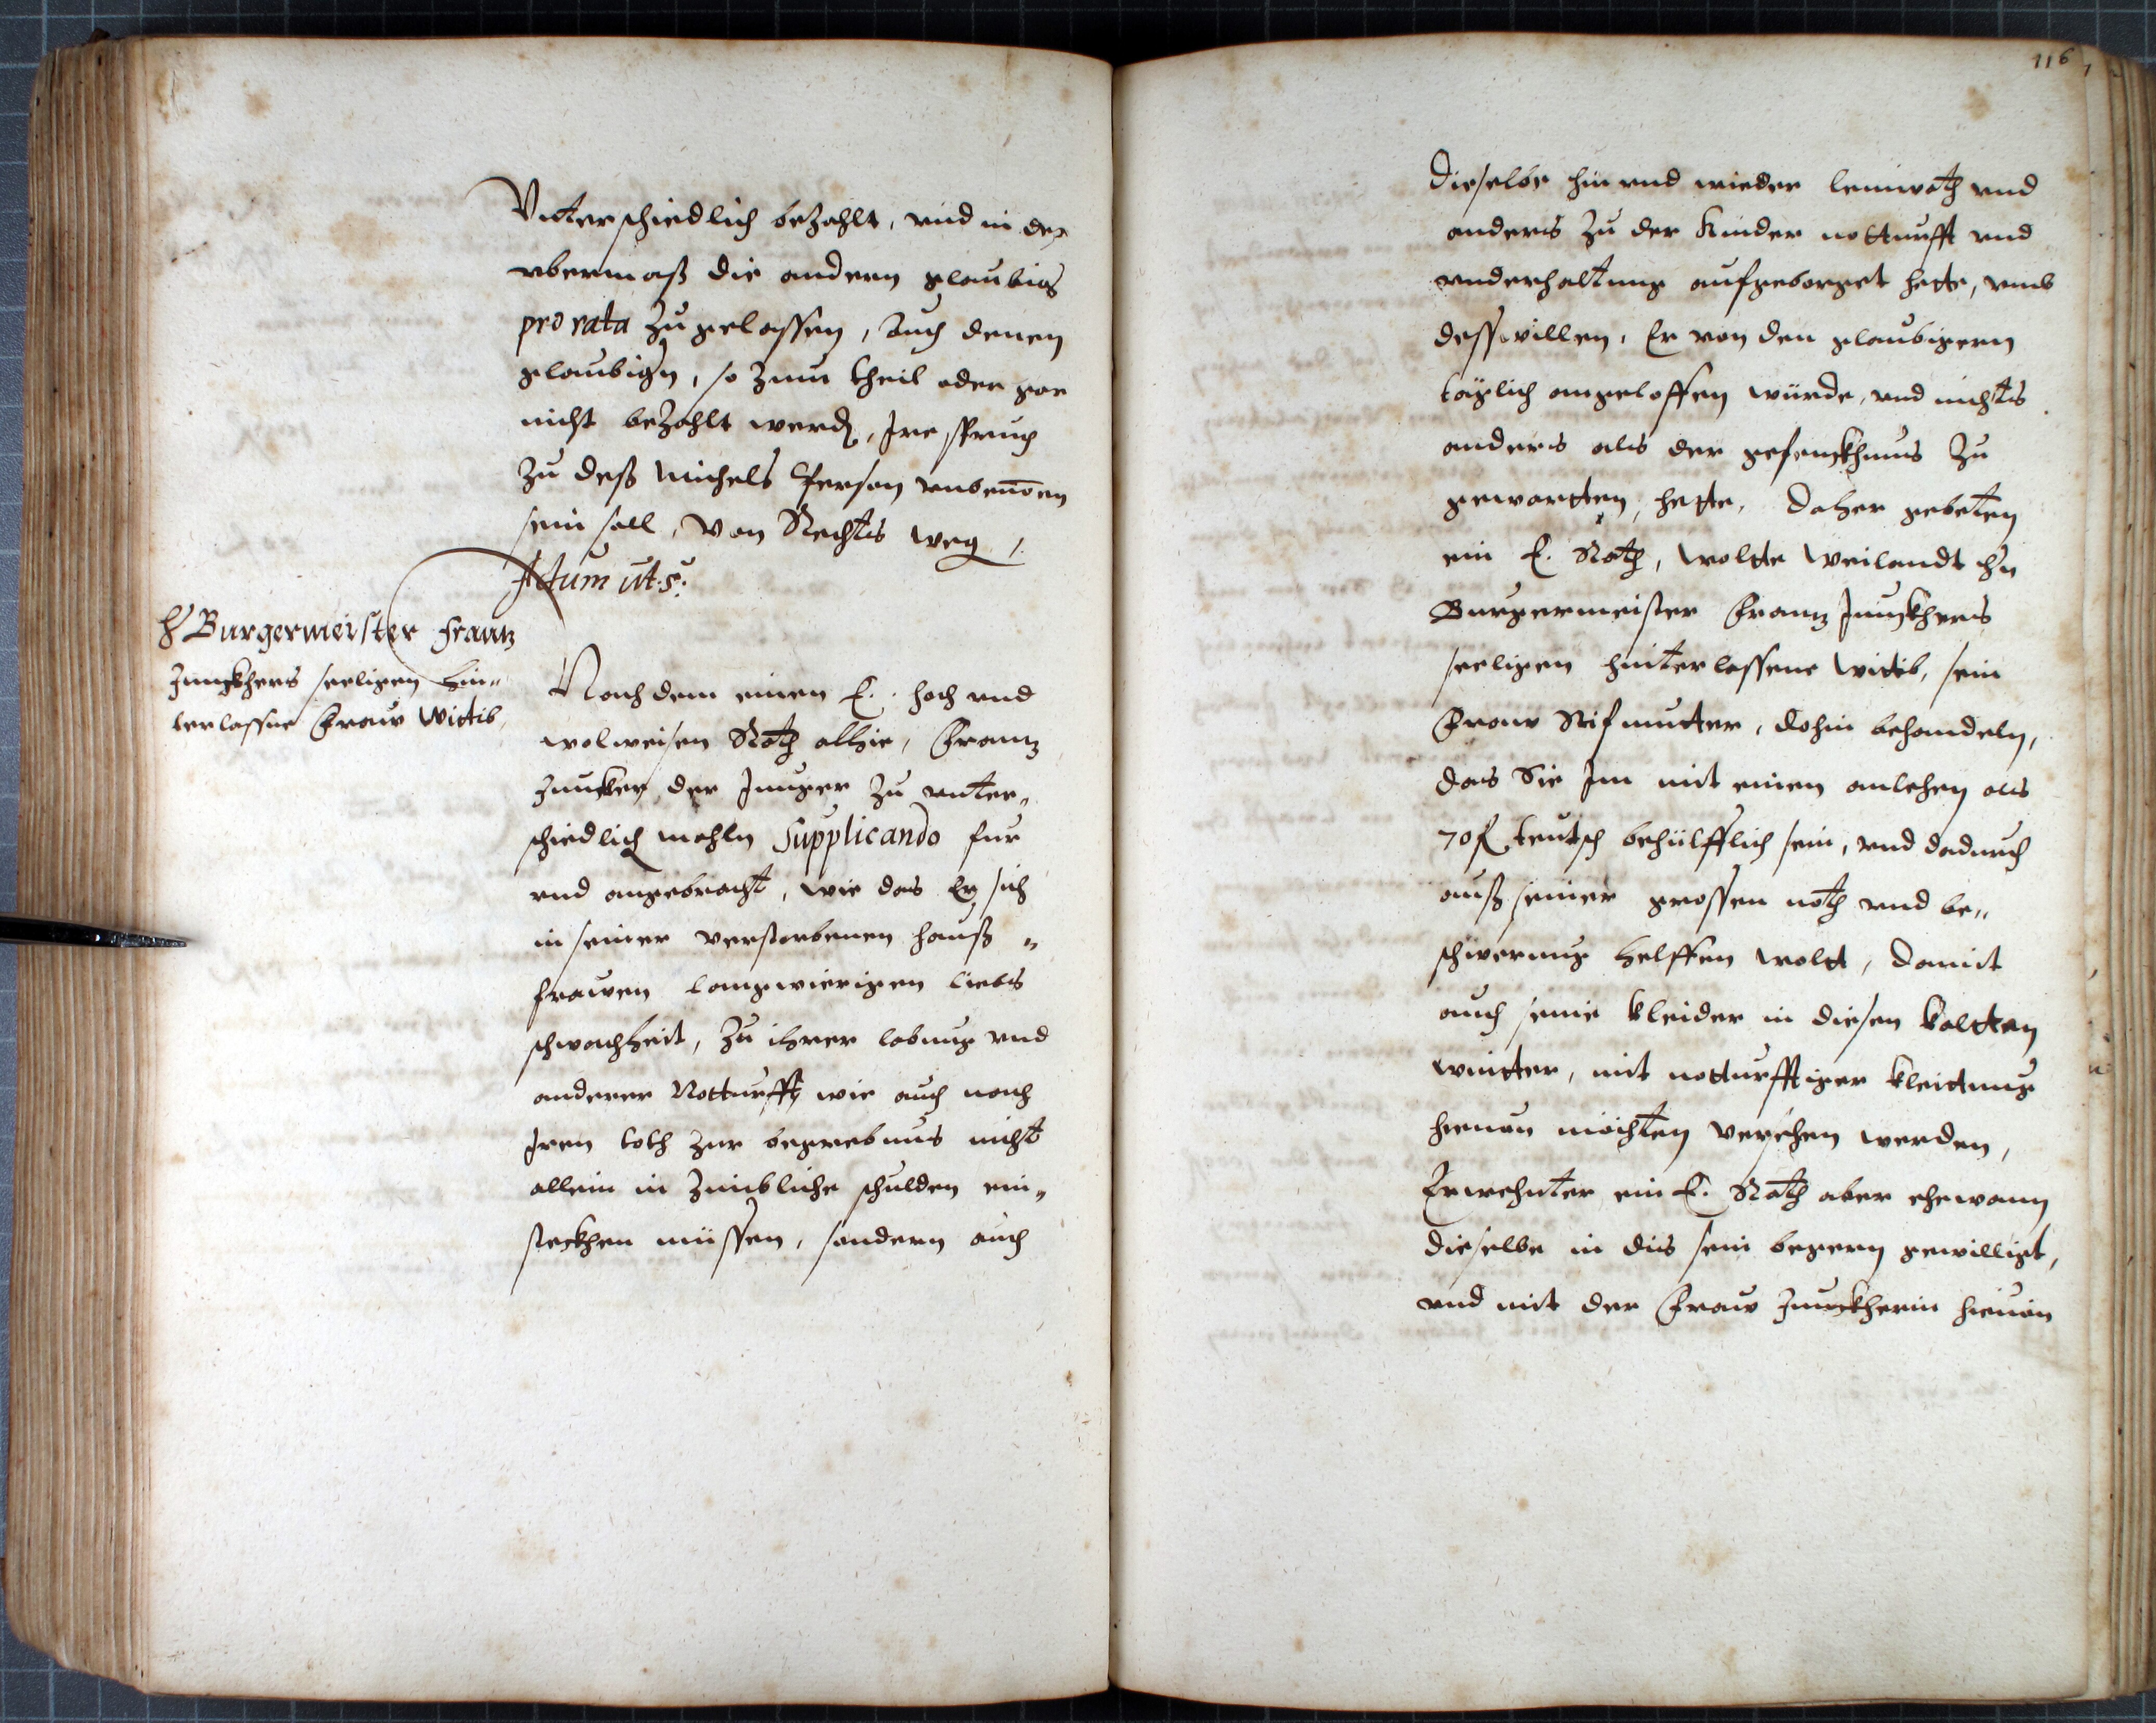 Vnterschiedlich bezahlt, vnd in der
vbermaß die andern glaubig
pro rata zugelassen, Auch denen
glaubign, so zum theil oder gar
nicht bezahlt werd, Ire spruch
zu deß Michels Person vnbenomen
sein soll, Von Rechts weg /.
Actum ut s:
H Burgermeister Frantz
Junckhers seeligen hin„
terlassne Fraw Wittib,
Nach dem einen E. hoch vnd
wolweisen Rath alhie, Frantz
Juncker der Junger zu vnter„
schiedlich mahln Supplicando fur
vnd angebracht, wie das Er sich
in seiner verstorbenen hauß „
frawen langwierigen Liebs
schwachheit, zu ihrer labung vnd
anderer Notturfft wie auch nach
Iren todt zur begrebnus nicht
allein in zimbliche schulden ein„
steckhen müssen, sondern auch
116
dieselbe hin vnd wieder leinwath vnd
anders zu der Kinder notturfft vnd
vnderhaltung aufgeborget hette, vmb
desswillen, Er von den glaubigern
täglich angeloffen würde, vnd nichts
anders als der gefenckhnus zu
gewartten hette. daher gebeten
ein E. Rath, wolte Weilandt Hn
Burgermeister Frantz Junckhers
seeligen hinterlassene Wittib, sein
Fraw Stifmutter, dohin behandeln,
das Sie Im mit einen anlehen als
70 f. teutsch behülfflich sein, vnd dadurch
auß seiner grossen noth vnd be„
schwerung helffen wolt, damit
auch seine kleider in diesen kaltten
winter, mit notturfftiger kleidung
hieuon möchten versehen werden,
Erwehnter ein E. Rath aber ehewann
dieselbe in dis sein begern gewilligt,
vnd mit der Fraw Junckherin hieuon